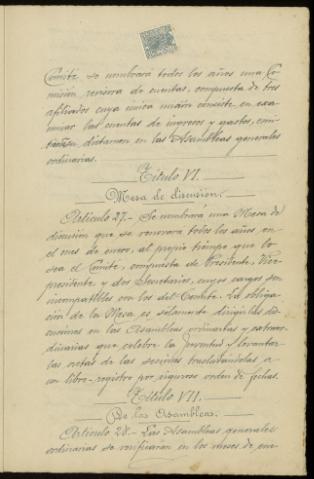 Comité se nombrará todos los años una Co-
misión revisora de cuentas, compuesta de tres
afiliados cuya única misión consiste en exa-
minar las cuentas de ingresos y gastos, emi-
tiendo dictamen en las Asambleas generales
ordinarias.
Título VI.
Mesa de discusión.
Artículo 27.- Se nombrará una Mesa de
discusión que se renovará todos los años, en
el mes de enero, al propio tiempo que lo
sea el Comité, compuesta de Presidente, Vice-
presidente y dos Secretarios, cuyos cargos son
incompatibles con los del Comité. La obliga-
ción de la Mesa es solamente dirigir las dis-
cusiones en las Asambleas ordinarias y extraor-
dinarias que celebre la Juventud y levantar
las actas de las sesiones trasladándolas a
un libro-registro por riguroso orden de fechas.
Título VII.
De las Asambleas.
Artículo 28.- Las Asambleas generales
ordinarias se verificarán en los meses de ene-